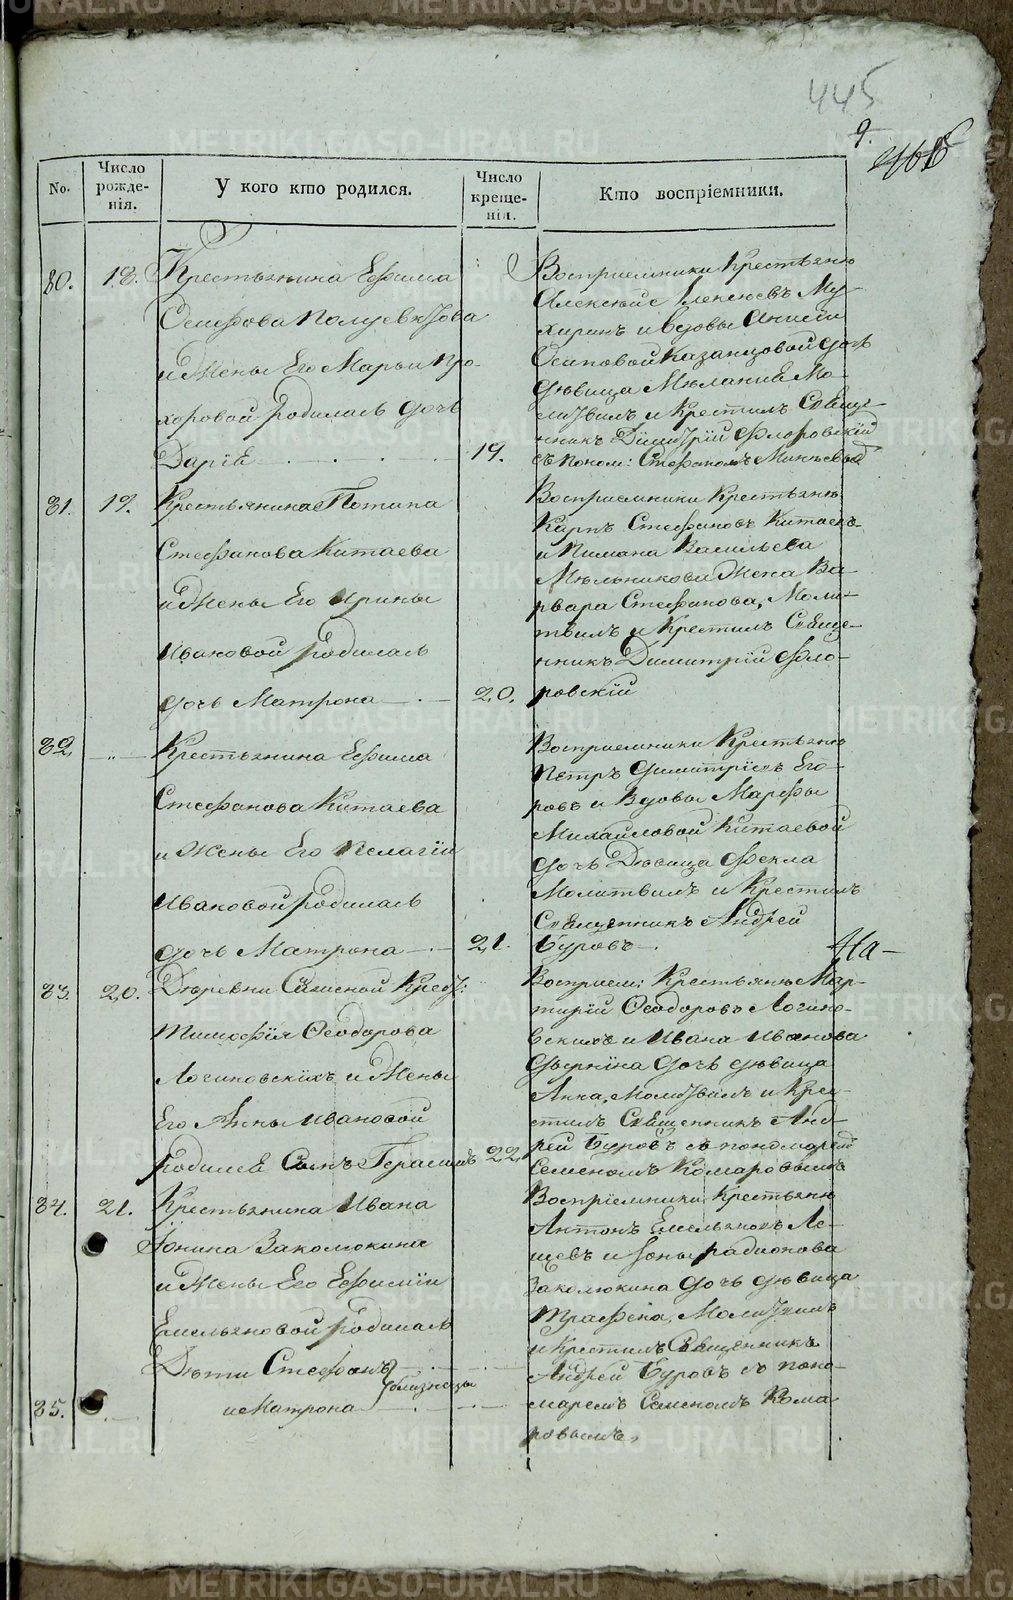 445
9.
No.
Число рожде-нія.
У кого кто родился.
Число креще-нія.
Кто воспріемники.
80.
18.
Крестьянина Ефима
Осифова Полуевктова
и Жены Его Марьи Про-
хоровой родилась дочь
Дарія
19.
Восприемники Крестьянъ
Алексѣй Алексѣевъ Му-
хиринъ и вдовы Анисьи
Осиповой Казанцовой дочь
дѣвица Мѣланія Мо-
литвилъ и Крестилъ Свяще-
нникъ Димитрій Флоровскій
съ поном: Стефаномъ
81.
19.
Крестьянина Потапа
Стефанова Китаева
и Жены Его Ирины
Ивановой родилась
дочь Матрона
20.
Восприемники Крестьянъ
Карпъ Стефановъ Китаевъ
и Пимана Васильева
Мѣльникова Жена Ва-
рвара Стефанова, Моли-
твилъ и Крестилъ Свяще-
нникъ Димитрій Фло-
ровскій
82.
"
Крестьянина Ефима
Стефанова Китаева
и Жены Его Пелагіи
Ивановой родилась
дочь Матрона
21.
Восприемники Крестьянъ
Петръ Димитріевъ Его-
ровъ и Вдовы Марфы
Михайловой Китаевой
дочь Дѣвица Фекла
Молитвилъ и Крестилъ
Священникъ Андрей
Буровъ
83.
20.
Деревни Крест:
Тимофѣя Феодорова
Логиновскихъ и Жены
Его Анны Ивановой
родился Сынъ Герасимъ
22.
Восприем: Крестьянъ Мар-
тирій Феодоровъ Логино-
вскихъ и Ивана Иванова
дочь дѣвица
Анна, Молитвилъ и Кре-
стилъ Священникъ Анд-
рей Буровъ съ пономарем
Семеномъ Комаровымъ
84.
21.
Крестьянина Ивана
Іонина Заколюкина
и Жены Его Ефиміи
Емельяновой родились
Дѣти Стефанъ
близнецы
85.
и Матрона
Воспріемники Крестьянъ
Антонъ Емельяновъ Ле-
щевъ и Іоны Радионова
Заколюкина дочь дѣвица
Молитвилъ
и Крестилъ Священникъ
Андрей Буровъ съ поно-
маремъ Семеномъ Кома
ровымъ.
METRIKI.GASO-URAL.RU